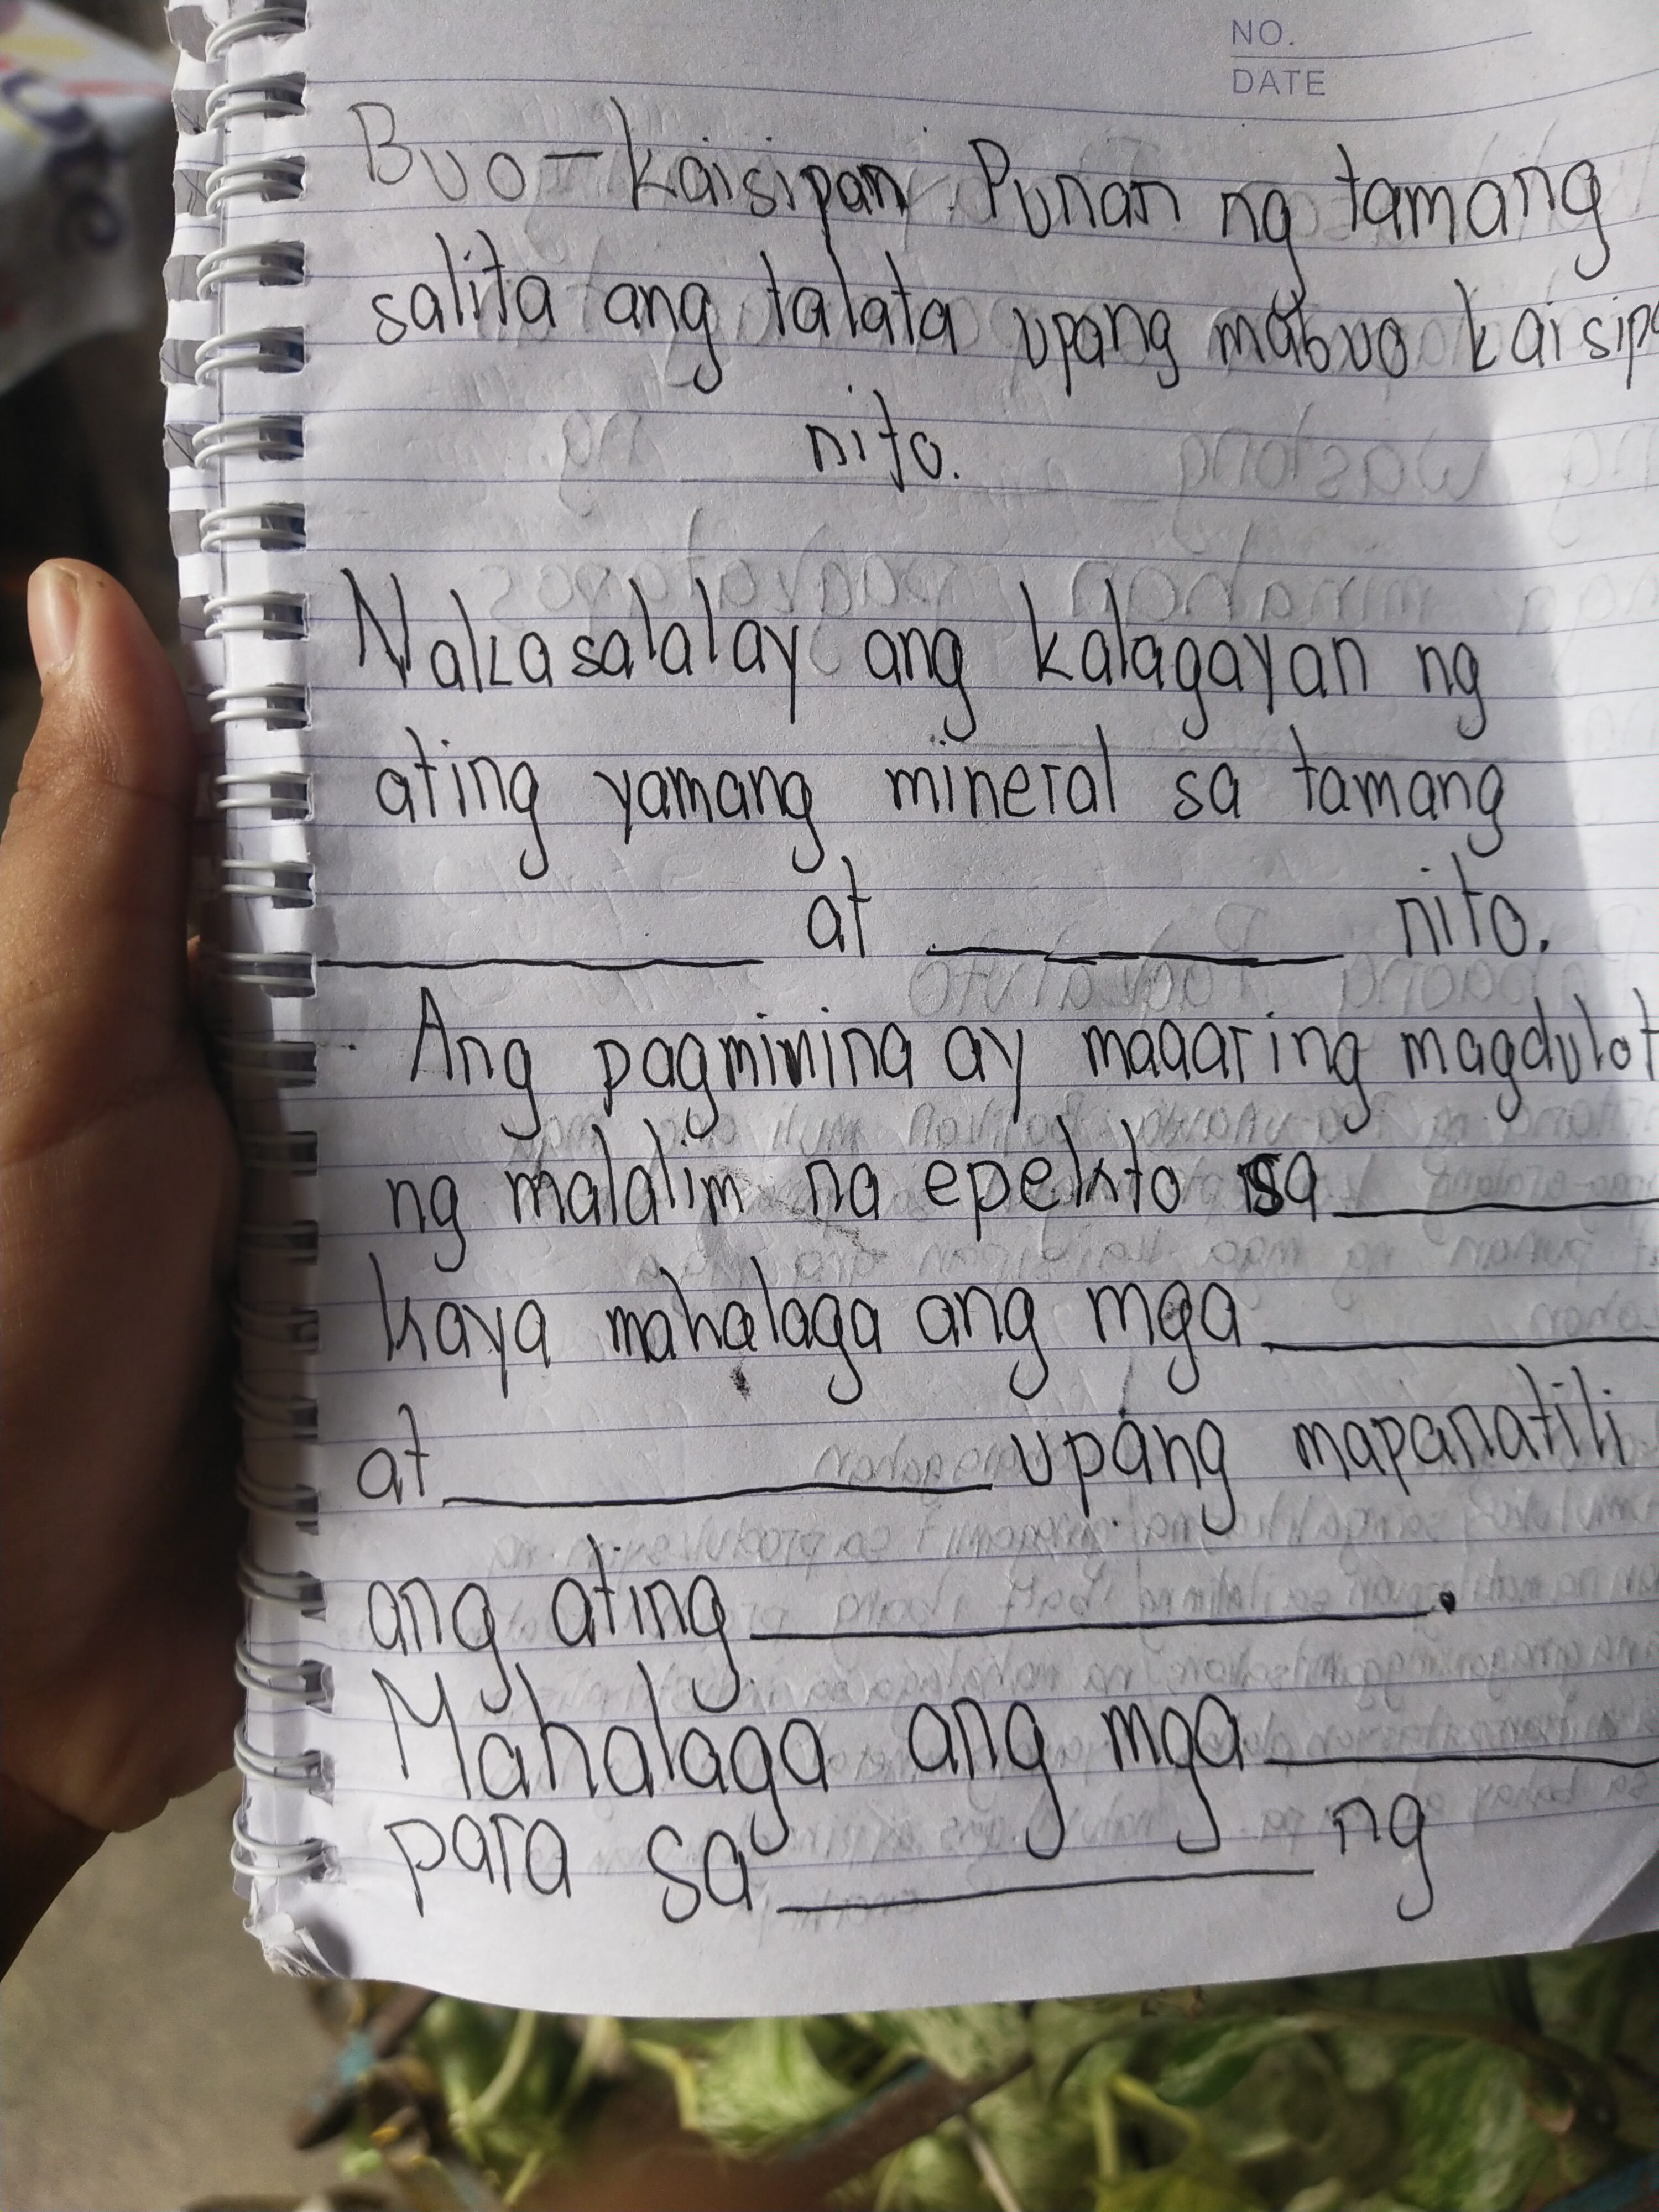 NO.
DATE
Buo-kaisipan. Punan ng tamang
salita ang talata upang mabuo kaisipa
nito.
Nakasalalay ang kalagayan ng
ating yamang mineral sa tamang
__________ at __________ nito.
Ang pagmimina ay maaaring magdulot
ng malalim na epekto sa __________
kaya mahalaga ang mga __________
at __________ upang mapanatili
ang ating __________.
Mahalaga ang mga __________
para sa __________ ng